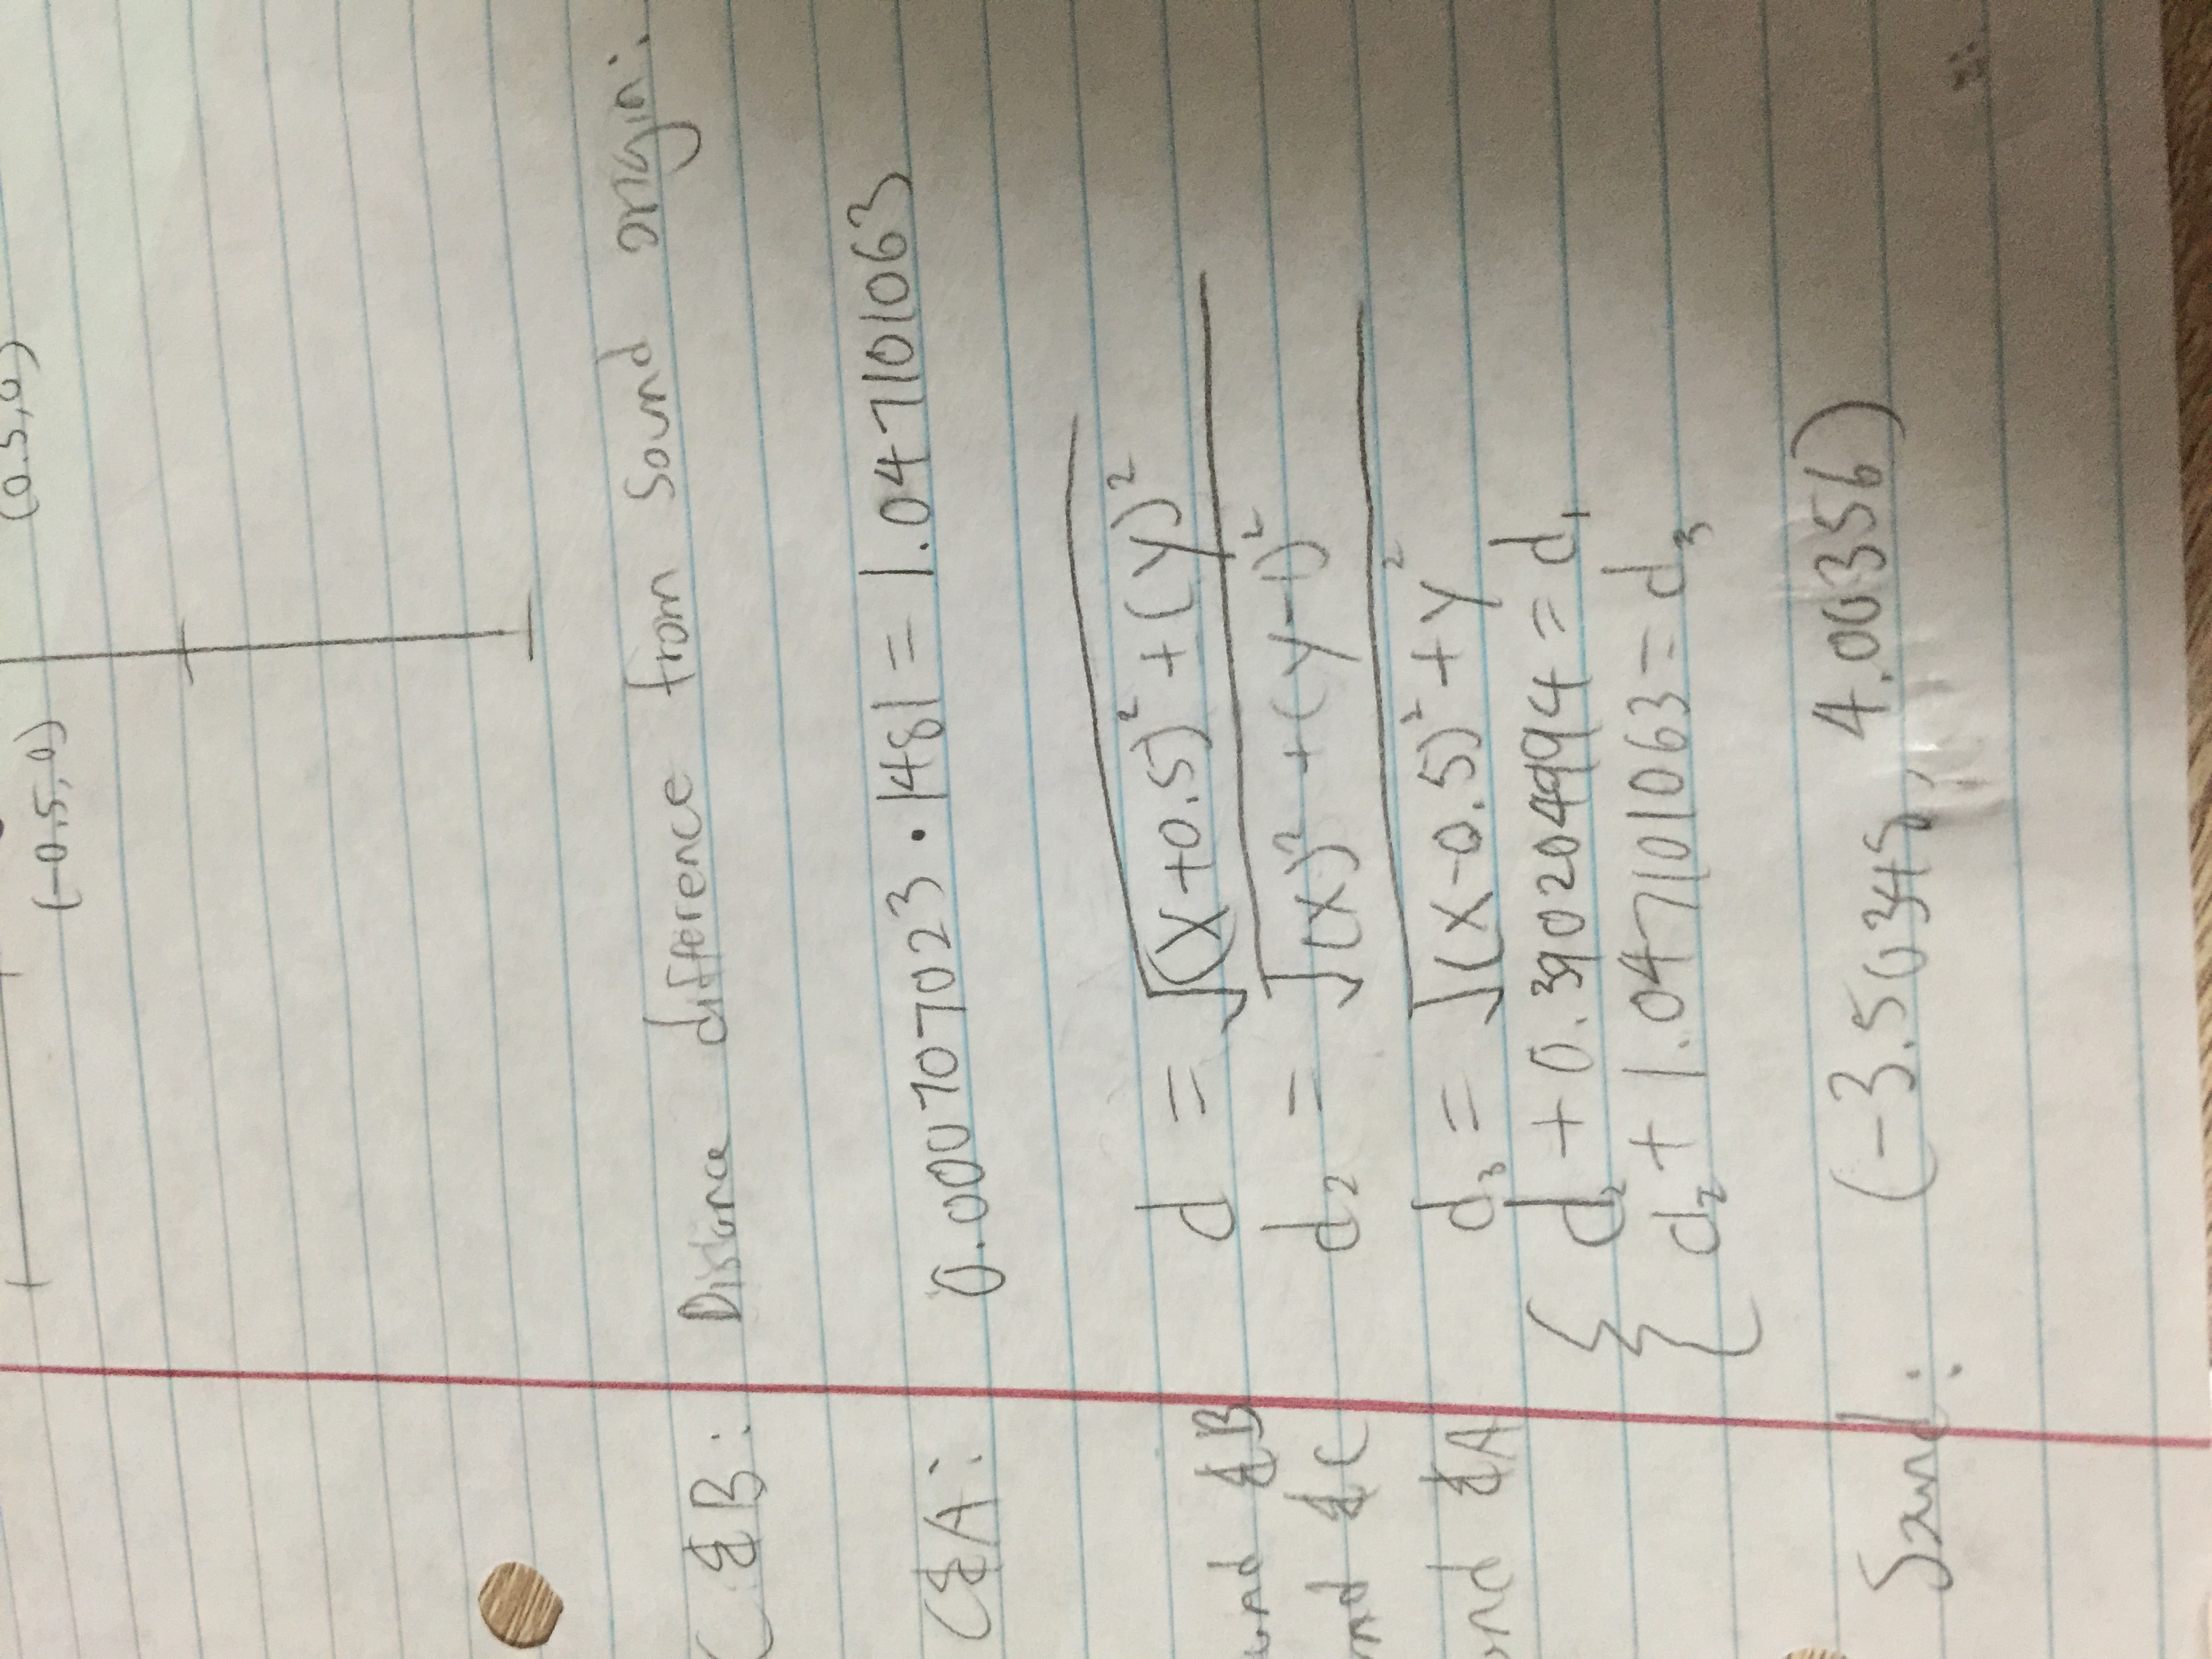 (-0.5, 0) (0.5, 0)
C & B: Distance difference from sound origin:
C & A: 0.000707023 · 1481 = 1.047101063
d = √(x+0.5)² + (y)²
& B
d₂ = √(x)² + (y-1)²
& C
d₃ = √(x-0.5)² + y²
& A
{ d₂ + 0.390204994 = d₁
d₂ + 1.047101063 = d₃
Sound: (-3.50348, 4.00356)